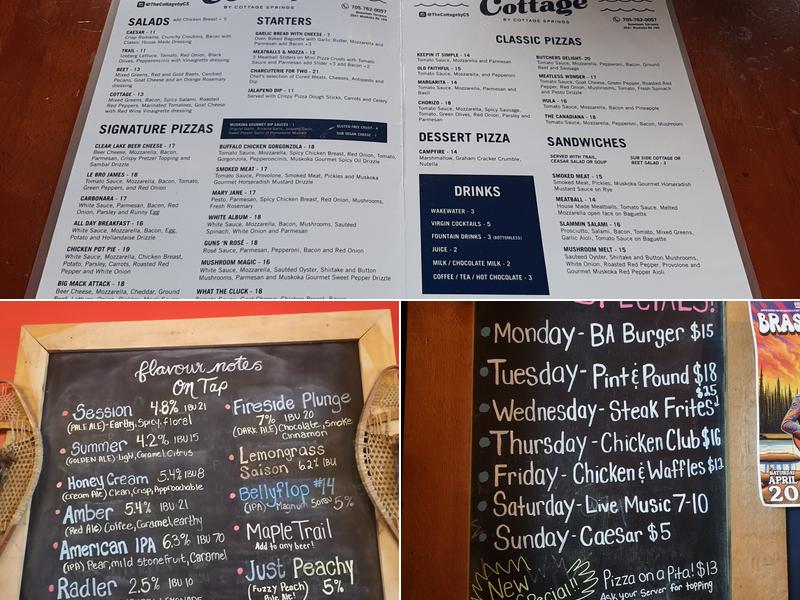 @TheCottagebyCS
Cottage
BY COTTAGE SPRINGS
705-762-0057
SALADS add Chicken Breast + 5
CAESAR - 11
Crisp Romaine, Crunchy Croutons, Bacon with
Classic House Made Dressing
TRAIL - 11
Iceberg Lettuce, Tomato, Red Onion, Black
Olives, Pepperoncinis with Vinaigrette dressing
BEET - 13
Mixed Greens, Red and Gold Beets, Candied
Pecans, Goat Cheese and an Orange Rosemary
dressing
COTTAGE - 13
Mixed Greens, Bacon, Spicy Salami, Roasted
Red Peppers, Marinated Tomatoes, Goat Cheese
with Red Wine Vinaigrette dressing
STARTERS
GARLIC BREAD WITH CHEESE - 7
Oven Baked Baguette with Garlic Butter, Mozzarella and
Parmesan add Bacon +3
MEATBALLS & MOZZA - 12
3 Meatball Sliders on Mini Pizza Crusts with Tomato
Sauce and Parmesan add Slider +3 add Bacon +2
CHARCUTERIE FOR TWO - 21
Chef's selection of Cured Meats, Cheeses, Antipasto and
Dip
JALAPENO DIP - 11
Served with Crispy Pizza Dough Sticks, Carrots and Celery
SIGNATURE PIZZAS
MUSKOKA GOURMET DIP SAUCES - 1
GLUTEN FREE CRUST - 4
SUB VEGAN CHEESE - 1
CLEAR LAKE BEER CHEESE - 17
Beer Cheese, Mozzarella, Bacon,
Parmesan, Crispy Pretzel Topping and
Sambal Drizzle
LE BRO JAMES - 18
Tomato Sauce, Mozzarella, Bacon, Tomato,
Green Peppers, and Red Onion
CARBONARA - 17
White Sauce, Parmesan, Bacon, Red
Onion, Parsley and Runny Egg
ALL DAY BREAKFAST - 16
White Sauce, Mozzarella, Bacon, Egg,
Potato and Hollandaise Drizzle
CHICKEN POT PIE - 19
White Sauce, Mozzarella, Chicken Breast,
Potato, Parsley, Carrots, Roasted Red
Pepper and White Onion
BIG MACK ATTACK - 18
Beer Cheese, Mozzarella, Cheddar, Ground
BUFFALO CHICKEN GORGONZOLA - 18
Tomato Sauce, Mozzarella, Spicy Chicken Breast, Red Onion, Tomato,
Gorgonzola, Pepperoncinis, Muskoka Gourmet Spicy Oil Drizzle
SMOKED MEAT - 17
Tomato Sauce, Provolone, Smoked Meat, Pickles and Muskoka
Gourmet Horseradish Mustard Drizzle
MARY JANE - 17
Pesto, Parmesan, Spicy Chicken Breast, Red Onion, Mushrooms,
Fresh Rosemary
WHITE ALBUM - 18
White Sauce, Mozzarella, Bacon, Mushrooms, Sauteed
Spinach, White Onion and Parmesan
GUNS 'N ROSÉ - 18
Rosé Sauce, Parmesan, Pepperoni, Bacon and Red Onion
MUSHROOM MAGIC - 16
White Sauce, Mozzarella, Sautéed Oyster, Shiitake and Button
Mushrooms, Parmesan and Muskoka Gourmet Sweet Pepper Drizzle
WHAT THE CLUCK - 18
Tomato Sauce, Goat Cheese, Chicken Breast, Bacon,
@TheCottagebyCS
Cottage
BY COTTAGE SPRINGS
705-762-0057
CLASSIC PIZZAS
KEEPIN IT SIMPLE - 14
Tomato Sauce, Mozzarella and Parmesan
OLD FAITHFUL - 15
Tomato Sauce, Mozzarella, and Pepperoni
MARGARITA - 14
Tomato Sauce, Mozzarella, Parmesan and
Basil
CHORIZO - 18
Tomato Sauce, Mozzarella, Spicy Sausage,
Tomato, Green Olives, Red Onion, Parsley and
Parmesan
BUTCHERS DELIGHT- 20
Tomato Sauce, Mozzarella, Pepperoni, Bacon, Ground
Beef and Sausage
MEATLESS WONDER - 17
Tomato Sauce, Goat Cheese, Green Pepper, Roasted Red
Pepper, Red Onion, Mushrooms, Tomato, Fresh Spinach
and Pesto Drizzle
HULA - 16
Tomato Sauce, Mozzarella, Bacon and Pineapple
THE CANADIANA - 18
Tomato Sauce, Mozzarella, Pepperoni, Bacon, Mushroom
DESSERT PIZZA
CAMPFIRE - 14
Marshmallow, Graham Cracker Crumble,
Nutella
DRINKS
WAKEWATER - 3
VIRGIN COCKTAILS - 5
FOUNTAIN DRINKS - 3 (BOTTOMLESS)
JUICE - 2
MILK / CHOCOLATE MILK - 2
COFFEE / TEA / HOT CHOCOLATE - 3
SANDWICHES
SERVED WITH TRAIL,
CEASAR SALAD OR SOUP
SUB SIDE COTTAGE OR
BEET SALAD - 3
SMOKED MEAT - 15
Smoked Meat, Pickles, Muskoka Gourmet Horseradish
Mustard Sauce on Rye
MEATBALL - 14
House Made Meatballs, Tomato Sauce, Melted
Mozzarella open face on Baguette
SLAMMIN SALAMI - 16
Prosciutto, Salami, Bacon, Tomato, Mixed Greens,
Garlic Aioli, Tomato Sauce on Baguette
MUSHROOM MELT - 15
Sauteed Oyster, Shiitake and Button Mushrooms,
White Onion, Roasted Red Pepper, Provolone and
Gourmet Muskoka Red Pepper Aioli
flavour notes
ON TAP
Session 4.8% IBU 21
(PALE ALE)-Earthy, Spicy, floral
Summer 4.2% IBU 15
(GOLDEN ALE) Light, Caramel, Citrus
Honey Cream 5.4% IBU 8
(Cream Ale) Clean, Crisp, Approachable
Amber 5.4% IBU 21
(Red Ale) Coffee, Caramel, earthy
American IPA 6.3% IBU 70
(IPA) Pear, mild stonefruit, Caramel
Radler 2.5% IBU 10
Fireside Plunge
7% IBU 20
(DARK ALE) Chocolate, Smoke
Cinnamon
Lemongrass
Saison 6.2% IBU
Bellyflop #14
(IPA) Magnum 5%
Maple Trail
Add to any beer!
Just Peachy
(Fuzzy Peach) 5%
Pale Ale!
SPECIALS!
Monday - BA Burger $15
Tuesday - Pint & Pound $18
$25
Wednesday - Steak Frites
Thursday - Chicken Club $16
Friday - Chicken & Waffles $12
Saturday - Live Music 7-10
Sunday - Caesar $5
New
Special!!
Pizza on a Pita! $13
Ask your Server for topping
BRAS
SATURDAY
APRIL
20